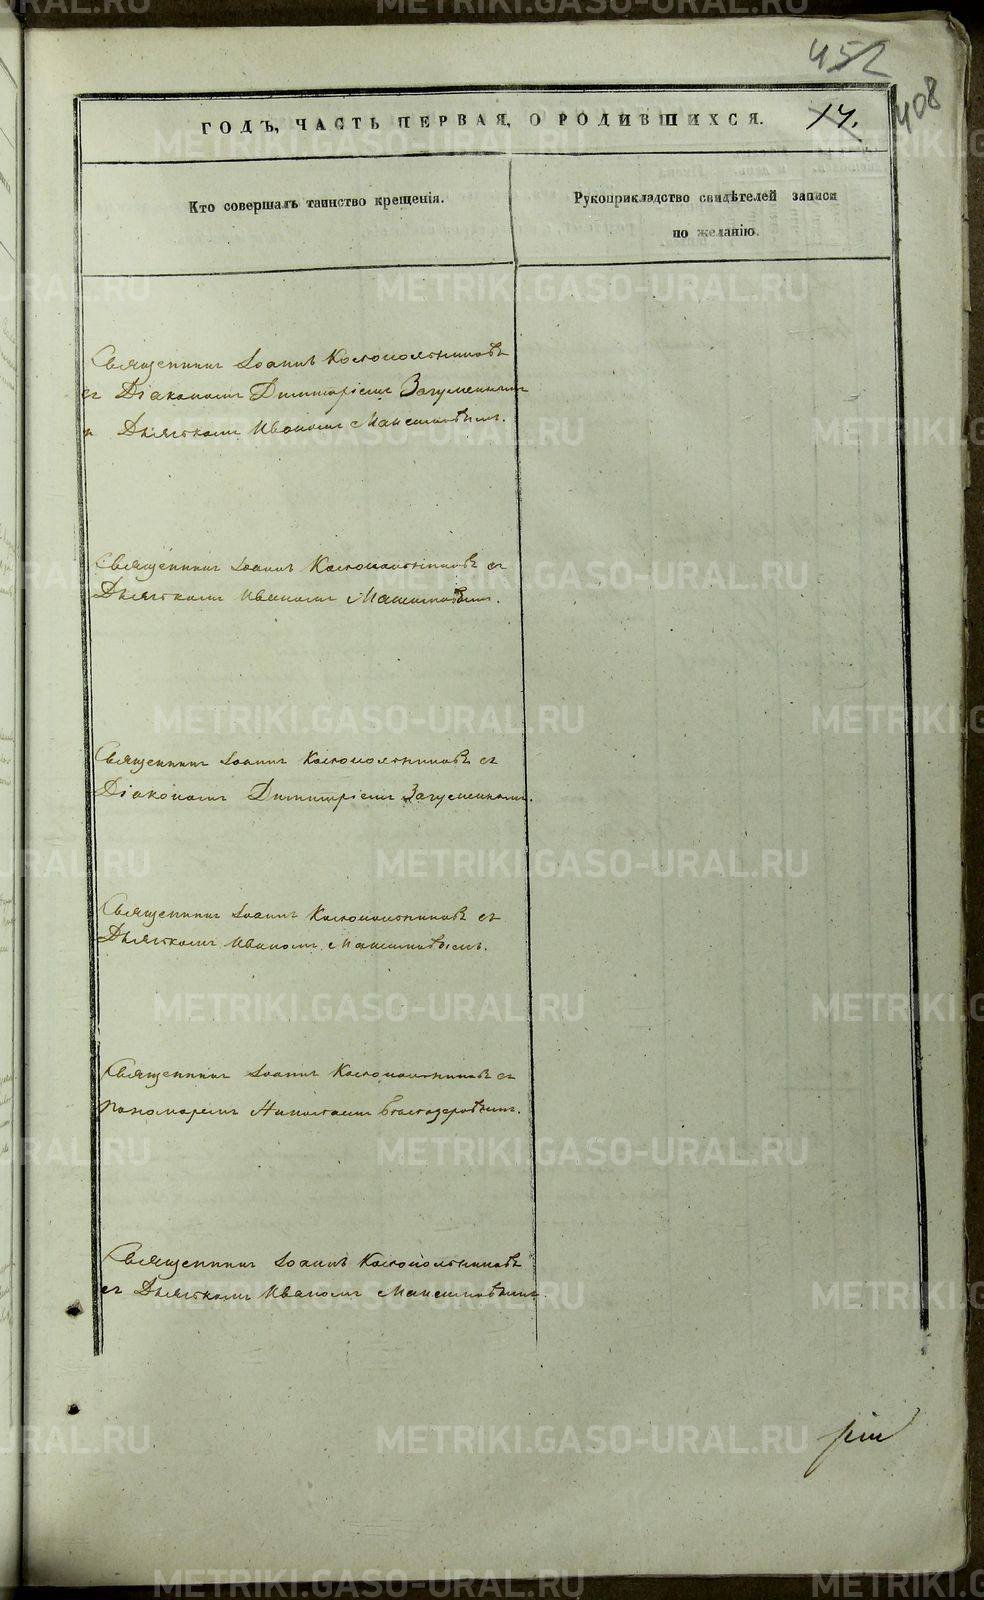 452
408
ГОДЪ, ЧАСТЬ ПЕРВАЯ, О РОДИВШИХСЯ.
14.
Кто совершалъ таинство крещенія.
Рукоприкладство свидѣтелей записи
по желанію.
Священникъ Іоаннъ Колокольниковъ
съ Діакономъ Димитріемъ Загуменнымъ
и Дьячкомъ Иваномъ Максимовымъ.
Священникъ Іоаннъ Колокольниковъ съ
Дьячкомъ Иваномъ Максимовымъ.
Священникъ Іоаннъ Колокольниковъ съ
Діакономъ Димитріемъ Загуменнымъ.
Священникъ Іоаннъ Колокольниковъ съ
Дьячкомъ Иваномъ Максимовымъ.
Священникъ Іоаннъ Колокольниковъ съ
Пономаремъ Николаемъ
Священникъ Іоаннъ Колокольниковъ
съ Дьячкомъ Иваномъ Максимовымъ.
METRIKI.GASO-URAL.RU